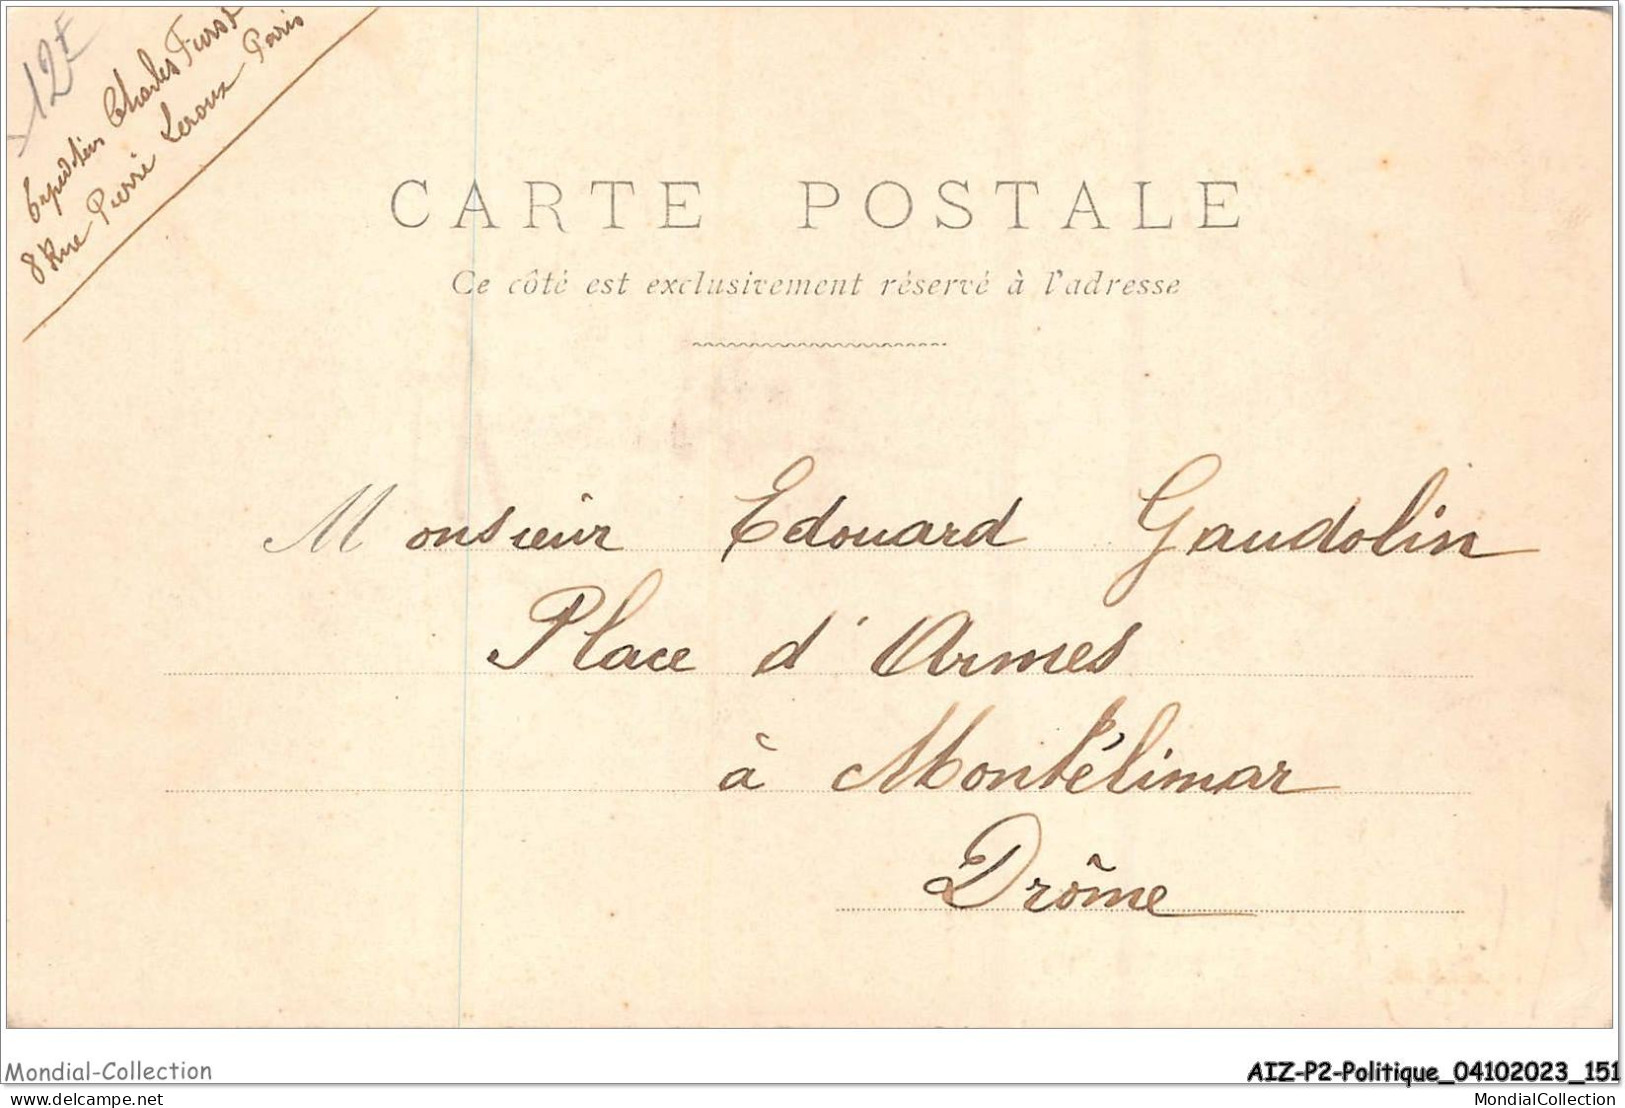 12F
Expéditeur Charles Furst
8 Rue Pierre Leroux Paris
CARTE POSTALE
Ce côté est exclusivement réservé à l'adresse
Monsieur Edouard Gaudolin
Place d'Armes
à Montélimar
Drôme
Mondial-Collection
AIZ-P2-Politique_04102023_151
delcampe.net
MondialCollection